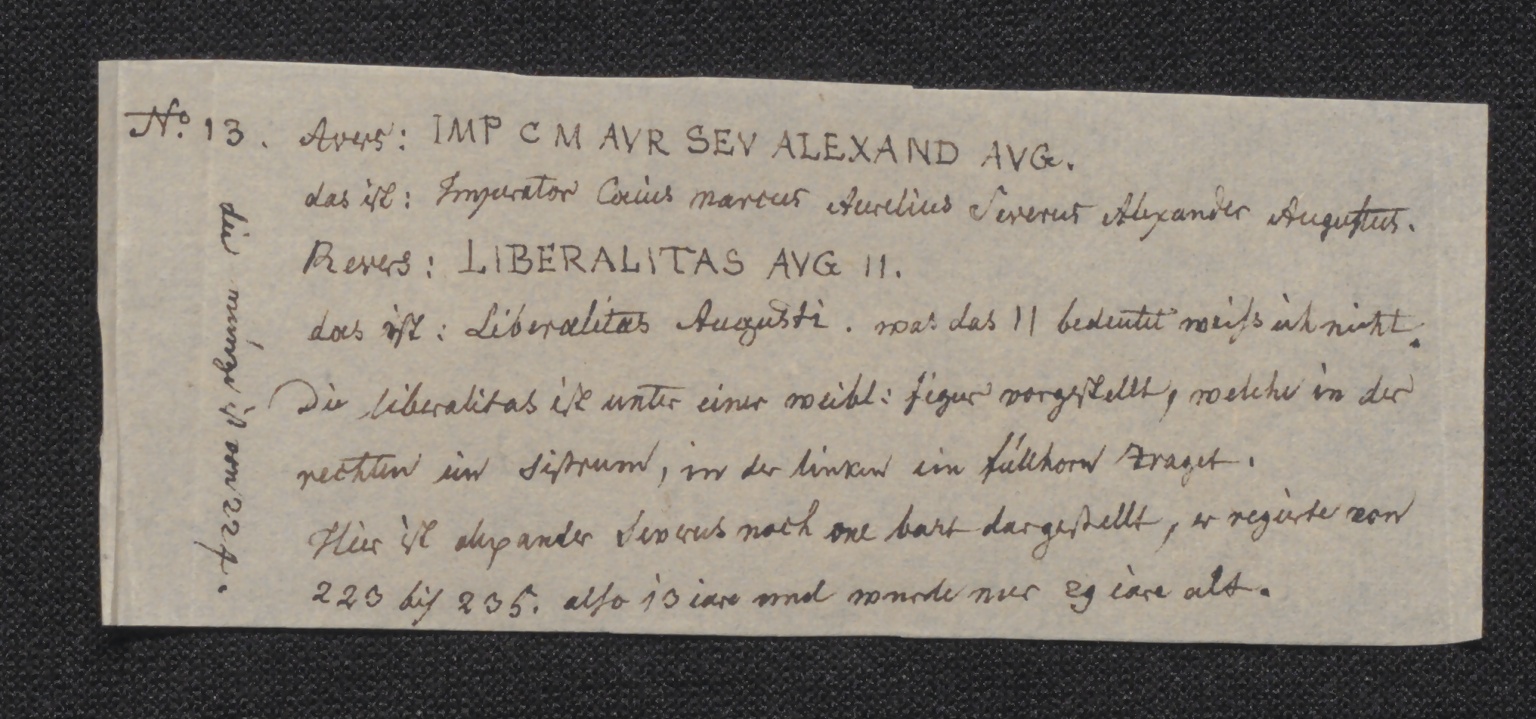 No. 13. Avers: IMP C M AVR SEV ALEXAND AVG.
das ist: Imperator Caius Marcus Aurelius Severus Alexander Augustus.
Revers: LIBERALITAS AVG II.
das ist: Liberalitas Augusti. was das II bedeutet weiß ich nicht.
Die liberalitas ist unter einer weibl: figur vorgestellt, welche in der
rechten ein Sistrum, in der linken ein füllhorn traget.
Hier ist alexander Severus noch one bart dargestellt, er regirte von
223 bis 235. also 13 iare und wurde nur 29 iare alt.
die münze ist von 224.